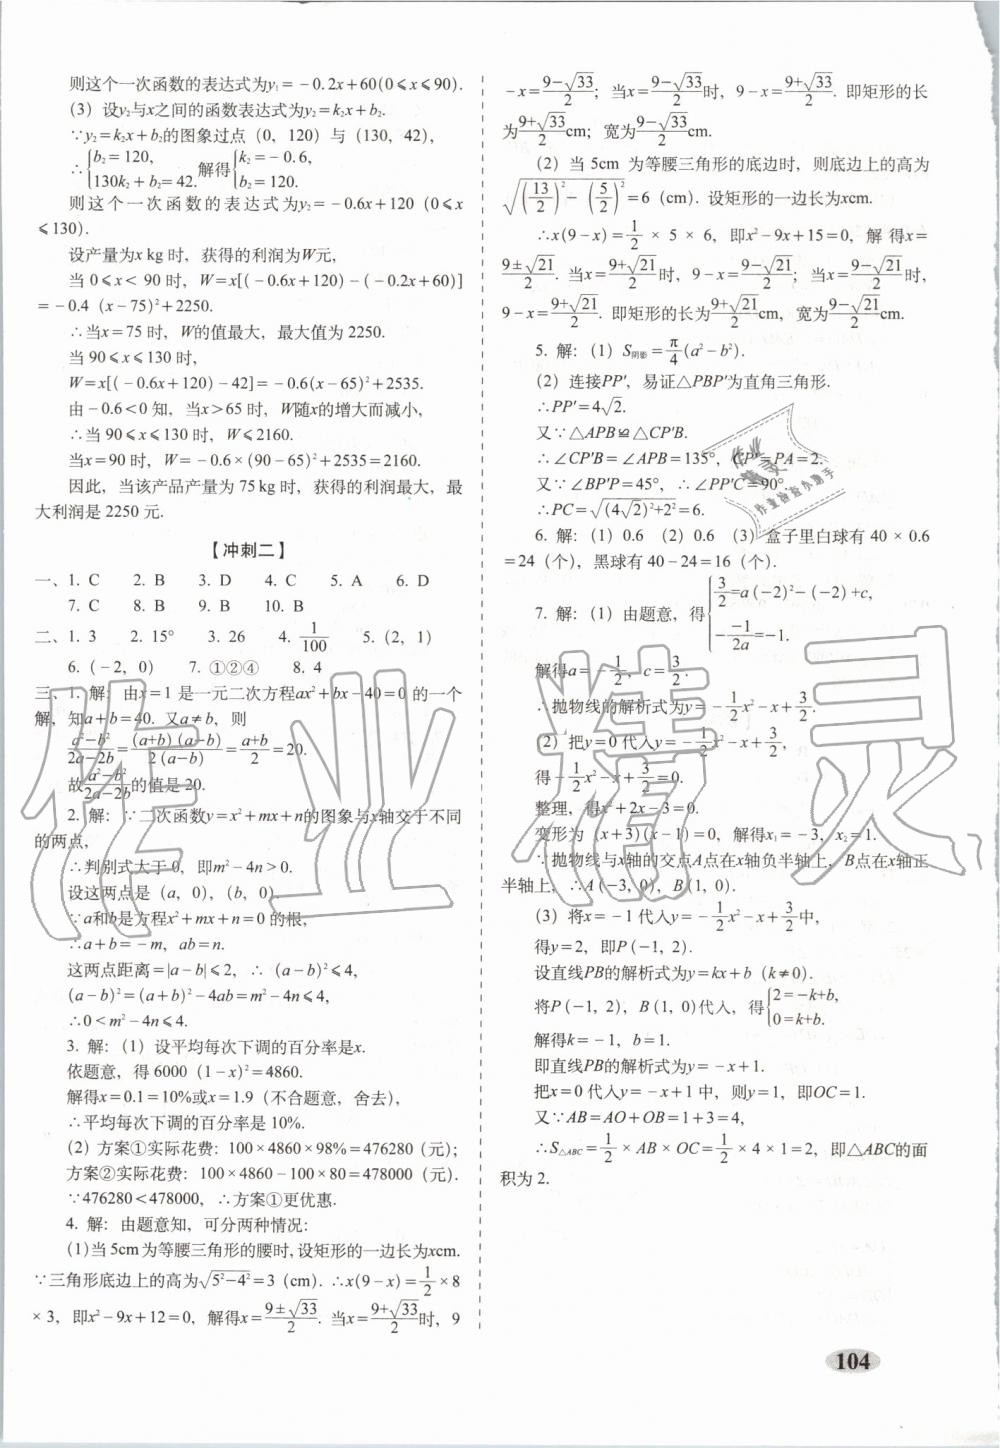 则这个一次函数的表达式为y₁=-0.2x+60(0⩽x⩽90).
(3) 设y₂与x之间的函数表达式为y₂=k₂x+b₂.
∵y₂=k₂x+b₂的图象过点(0, 120)与(130, 42),
∴{b₂=120, 130k₂+b₂=42. 解得{k₂=-0.6, b₂=120.
则这个一次函数的表达式为y₂=-0.6x+120 (0⩽x
⩽130).
设产量为x kg 时, 获得的利润为W元,
当 0⩽x< 90 时, W=x[(-0.6x+120)-(-0.2x+60)]
=-0.4 (x-75)²+2250.
∴当x=75 时, W的值最大, 最大值为 2250.
当 90⩽x⩽130 时,
W=x[(-0.6x+120)-42]=-0.6(x-65)²+2535.
由-0.6<0 知, 当x>65 时, W随x的增大而减小,
∴当 90⩽x⩽130 时, W⩽2160.
当x=90 时, W=-0.6×(90-65)²+2535=2160.
因此, 当该产品产量为 75 kg 时, 获得的利润最大, 最
大利润是 2250 元.
【冲刺二】
一、1. C 2. B 3. D 4. C 5. A 6. D
7. C 8. B 9. B 10. B
二、1. 3 2. 15° 3. 26 4. 1/100 5. (2, 1)
6. (-2, 0) 7. ①②④ 8. 4
三、1. 解: 由x=1 是一元二次方程ax²+bx-40=0 的一个
解, 知a+b=40. 又a≠b, 则
(a²-b²)/(2a-2b)=(a+b)(a-b)/2(a-b)=(a+b)/2=20.
故(a²-b²)/(2a-2b)的值是 20.
2. 解: ∵二次函数y=x²+mx+n的图象与x轴交于不同
的两点,
∴判别式大于 0, 即m²-4n>0.
设这两点是(a, 0), (b, 0),
∵a和b是方程x²+mx+n=0 的根,
∴a+b=-m, ab=n.
这两点距离=|a-b|⩽2, ∴(a-b)²⩽4,
(a-b)²=(a+b)²-4ab=m²-4n⩽4.
∴0<m²-4n⩽4.
3. 解: (1) 设平均每次下调的百分率是x.
依题意, 得 6000 (1-x)²=4860.
解得x=0.1=10%或x=1.9 (不合题意, 舍去),
∴平均每次下调的百分率是 10%.
(2) 方案①实际花费: 100×4860×98%=476280(元);
方案②实际花费: 100×4860-100×80=478000(元).
∵476280<478000, ∴方案①更优惠.
4. 解: 由题意知, 可分两种情况:
(1)当 5cm为等腰三角形的腰时, 设矩形的一边长为xcm.
∵三角形底边上的高为√(5²-4²)=3 (cm). ∴x(9-x)=1/2×8
×3, 即x²-9x+12=0, 解得x=(9±√33)/2. 当x=(9+√33)/2时, 9
-x=(9-√33)/2; 当x=(9-√33)/2时, 9-x=(9+√33)/2. 即矩形的长
为(9+√33)/2cm; 宽为(9-√33)/2cm.
(2) 当 5cm 为等腰三角形的底边时, 则底边上的高为
√((13/2)²-(5/2)²)=6 (cm). 设矩形的一边长为xcm.
∴x(9-x)=1/2×5×6, 即x²-9x+15=0, 解得x=
(9±√21)/2. 当x=(9+√21)/2时, 9-x=(9-√21)/2; 当x=(9-√21)/2时,
9-x=(9+√21)/2. 即矩形的长为(9+√21)/2cm, 宽为(9-√21)/2cm.
5. 解: (1) S阴影=π/4(a²-b²).
(2) 连接PP′, 易证△PBP′为直角三角形.
∴PP′=4√2.
又∵△APB≌△CP′B.
∴∠CP′B=∠APB=135°, CP′=PA=2.
又∵∠BP′P=45°, ∴∠PP′C=90°.
∴PC=√((4√2)²+2²)=6.
6. 解: (1) 0.6 (2) 0.6 (3) 盒子里白球有 40×0.6
=24 (个), 黑球有 40-24=16 (个).
7. 解: (1) 由题意, 得{3/2=a(-2)²-(-2)+c, -(-1)/2a=-1.
解得a=-1/2, c=3/2.
∴抛物线的解析式为y=-1/2x²-x+3/2.
(2) 把y=0 代入y=-1/2x²-x+3/2,
得-1/2x²-x+3/2=0.
整理, 得x²+2x-3=0.
变形为 (x+3)(x-1)=0, 解得x₁=-3, x₂=1.
∵抛物线与x轴的交点A点在x轴负半轴上, B点在x轴正
半轴上, ∴A(-3, 0), B(1, 0).
(3) 将x=-1 代入y=-1/2x²-x+3/2中,
得y=2, 即P(-1, 2).
设直线PB的解析式为y=kx+b (k≠0).
将P(-1, 2), B(1, 0)代入, 得{2=-k+b, 0=k+b.
解得k=-1, b=1.
即直线PB的解析式为y=-x+1.
把x=0 代入y=-x+1 中, 则y=1, 即OC=1.
又∵AB=AO+OB=1+3=4,
∴S△ABC=1/2×AB×OC=1/2×4×1=2, 即△ABC的面
积为 2.
104
作业精灵
作业精灵
作业检查小助手